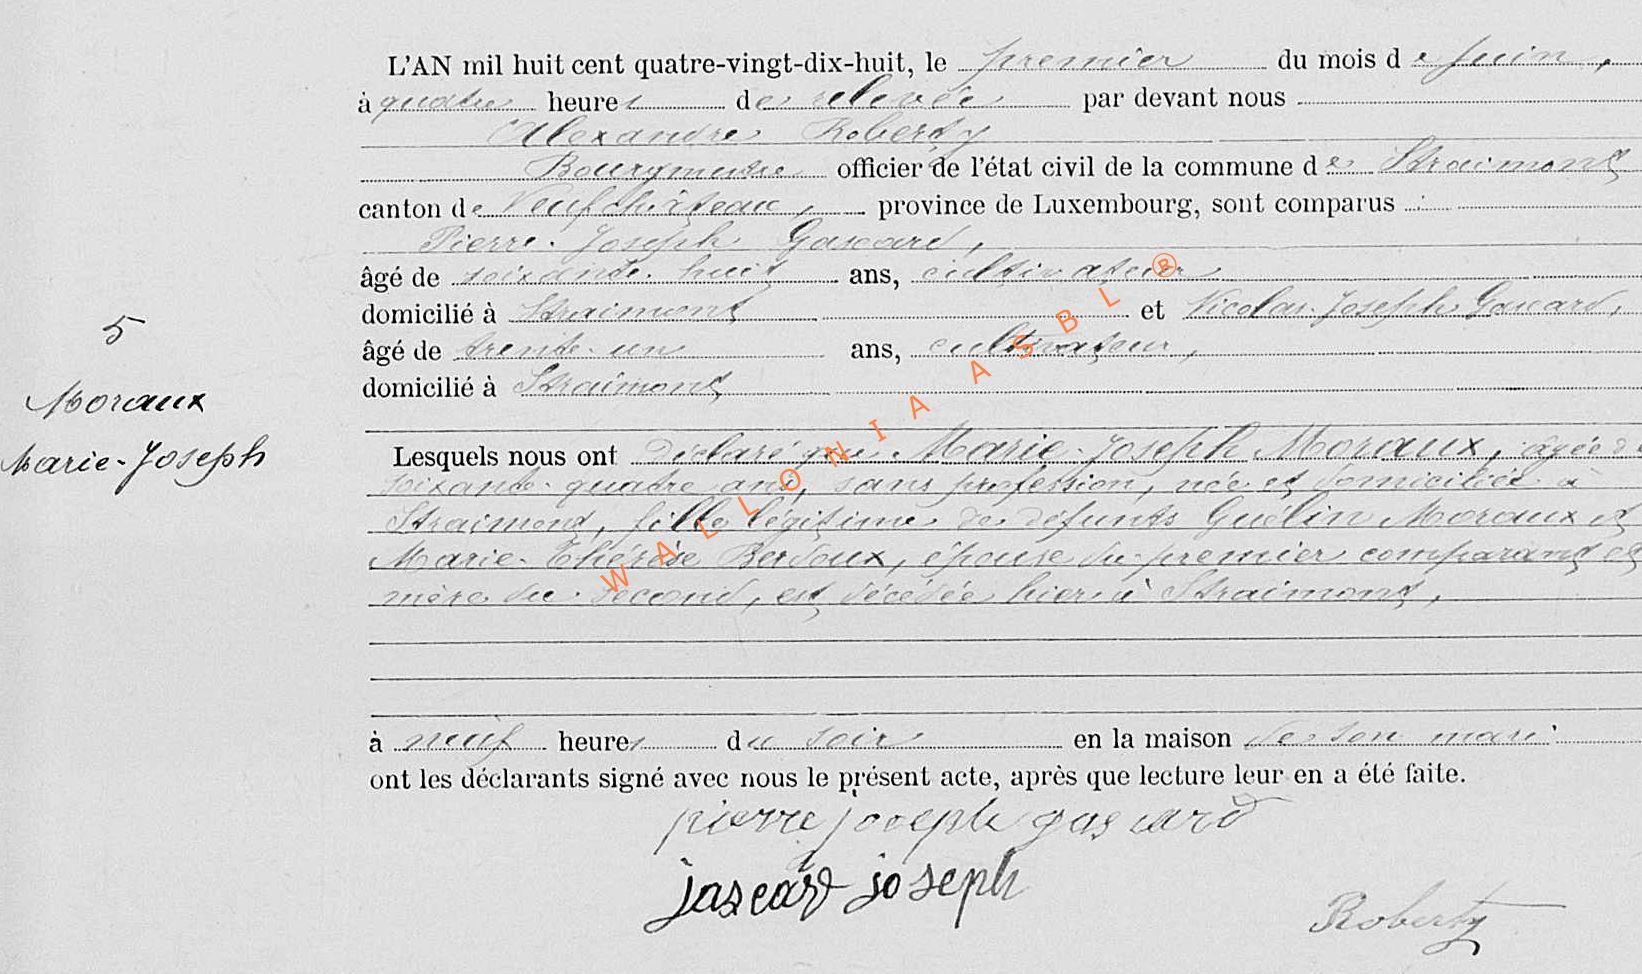 L'AN mil huit cent quatre-vingt-dix-huit, le premier du mois de Juin,
à quatre heures de relevée par devant nous
Alexandre Roberty
Bourgmestre officier de l'état civil de la commune de Straimont
canton de Neufchâteau, province de Luxembourg, sont comparus :
Pierre-Joseph Gascard,
âgé de soixante-huit ans, cultivateur
domicilié à Straimont et Nicolas-Joseph Gascard,
âgé de trente-un ans, cultivateur,
domicilié à Straimont
5
Moraux
Marie-Joseph
Lesquels nous ont déclaré que Marie-Joseph Moraux, âgée de
soixante-quatre ans, sans profession, née et domiciliée à
Straimont, fille légitime de défunts Guélin Moraux et
Marie-Thérèse Berdoux, épouse du premier comparant et
mère du second, est décédée hier à Straimont,
à neuf heures du soir en la maison de son mari
ont les déclarants signé avec nous le présent acte, après que lecture leur en a été faite.
pierre joseph gascard
jascard joseph
Roberty
WALLONIA ASBL ®